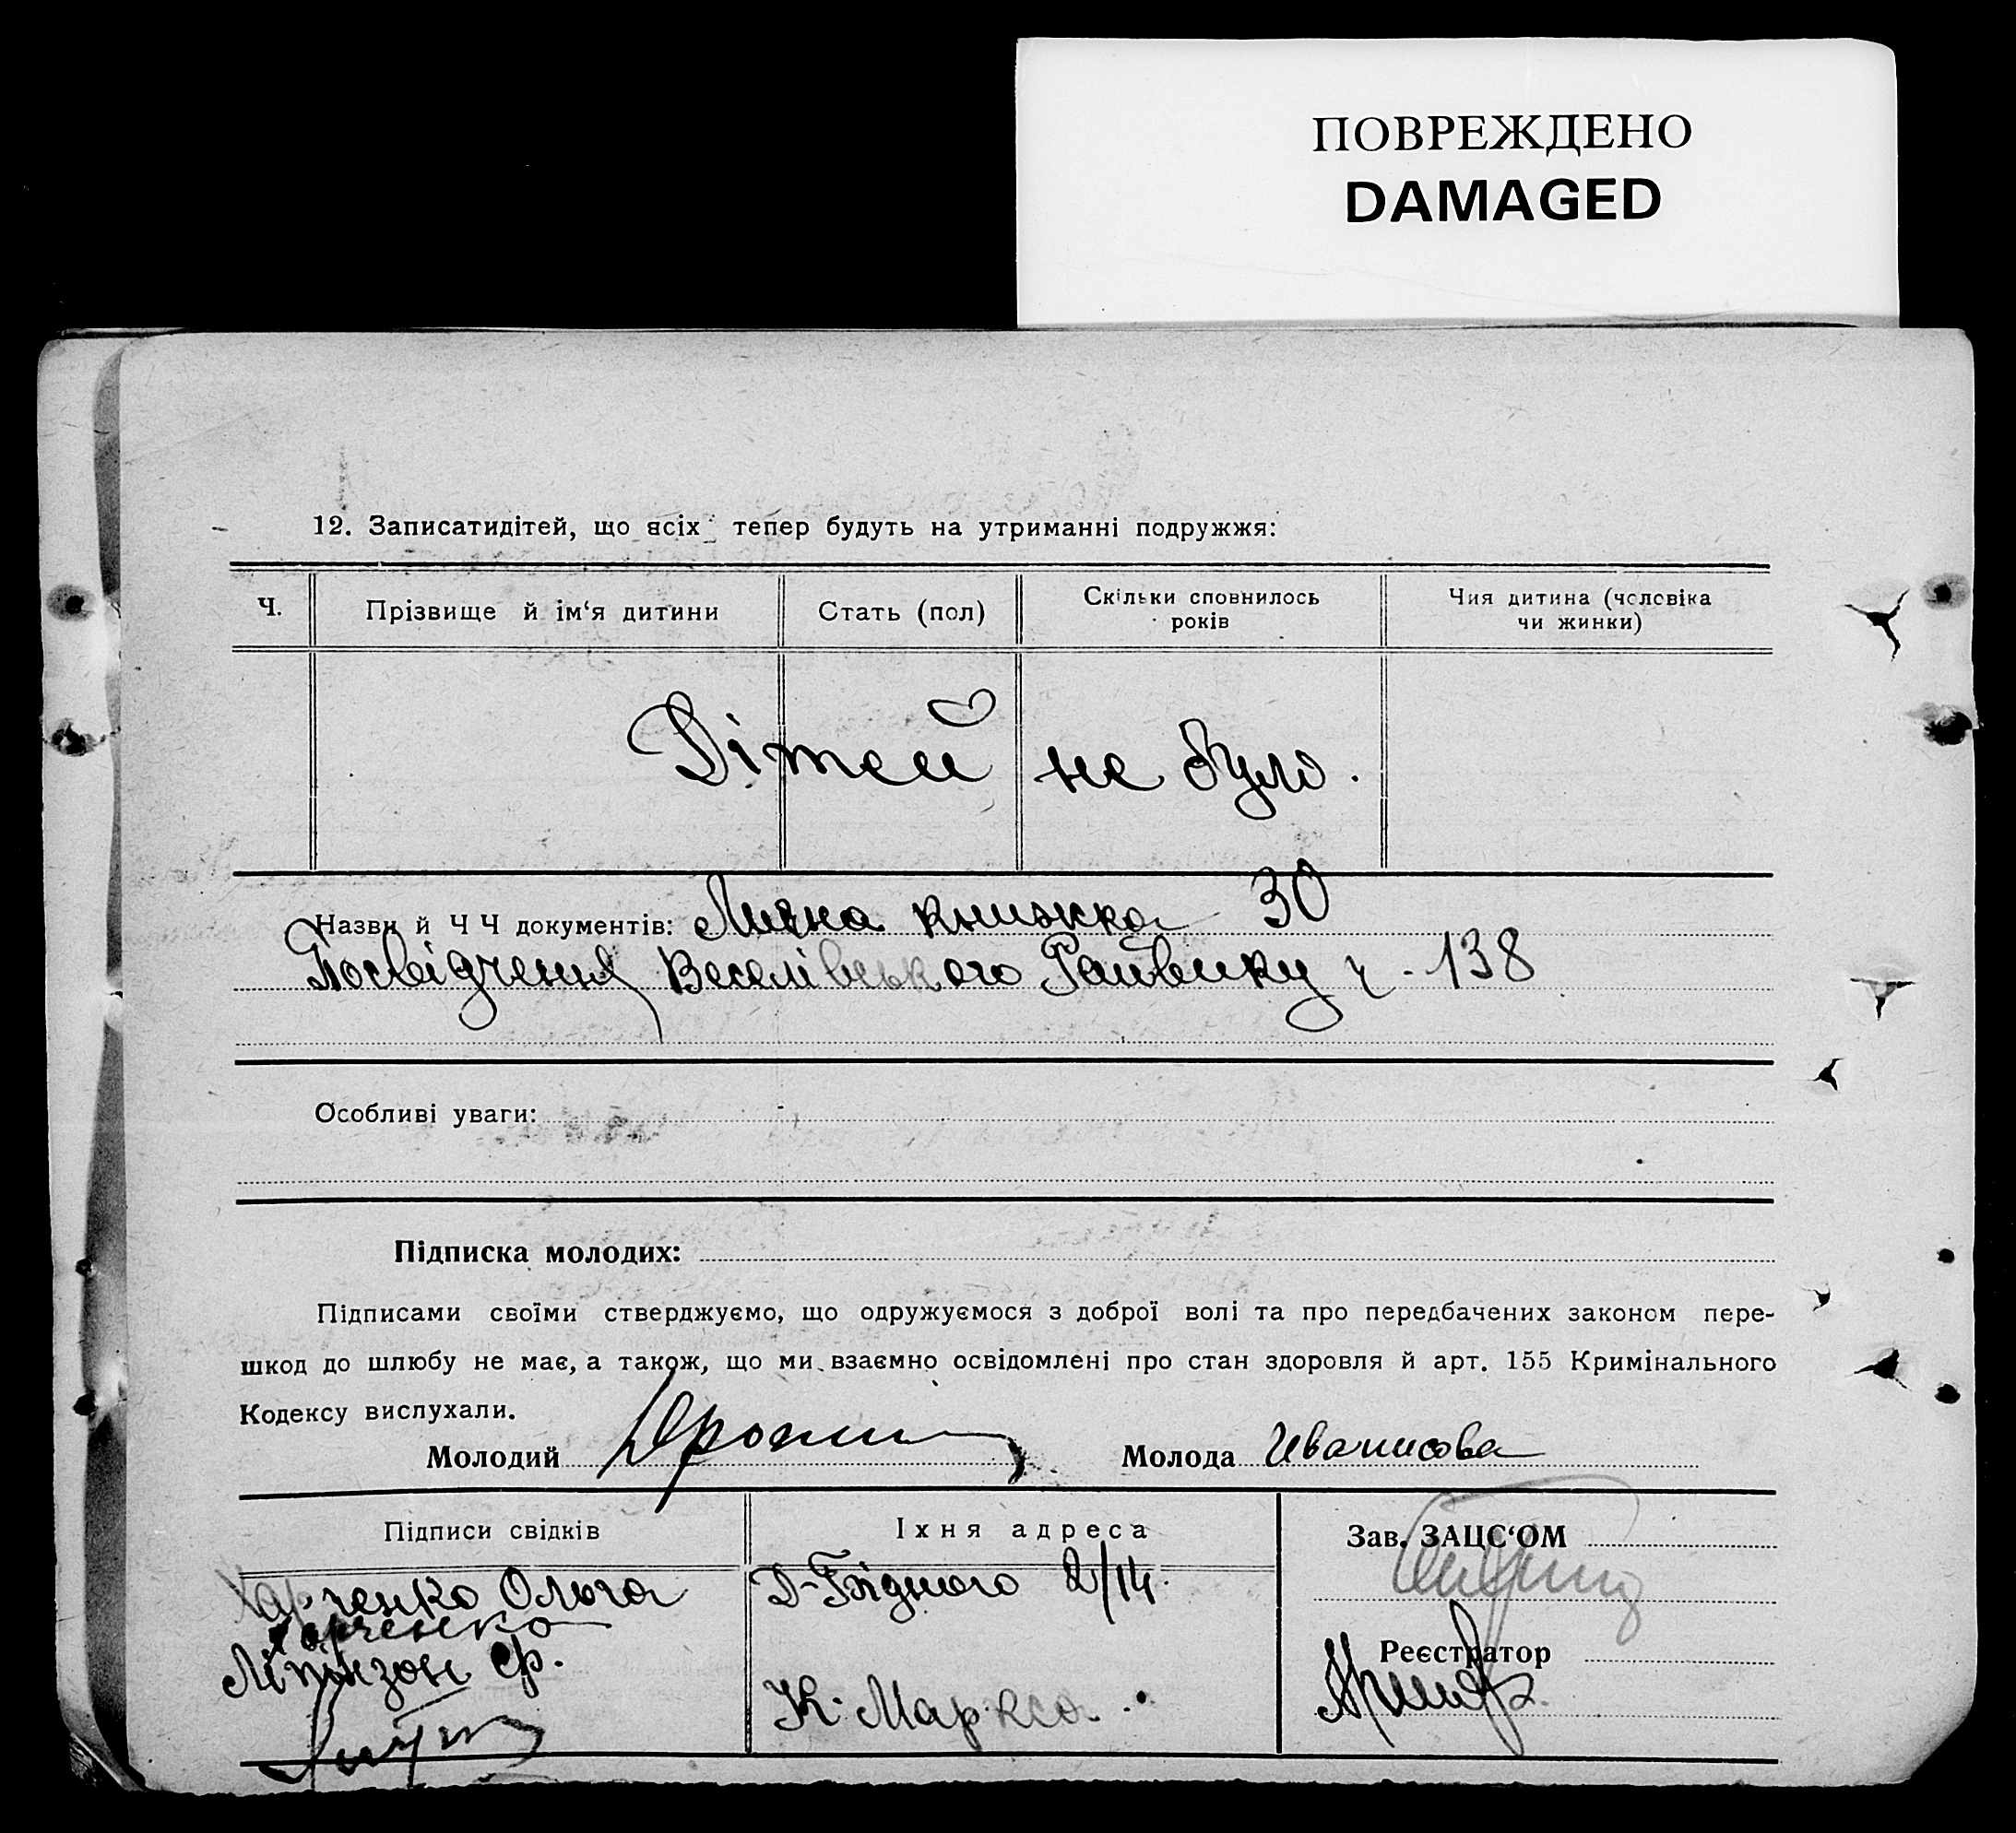 ПОВРЕЖДЕНО
DAMAGED
12. Записатидітей, що всіх тепер будуть на утриманні подружжя:
Ч.
Прізвище й ім‘я дитини
Стать (пол)
Скільки сповнилось
років
Чия дитина (чоловіка
чи жинки)
Дітей не було.
Назви й Ч Ч документів: книжка 30
Посвідчення Веселівського Райвику ч. 138
Особливі уваги:
Підписка молодих:
Підписами своїми стверджуємо, що одружуємося з доброї волі та про передбачених законом пере-
шкод до шлюбу не має, а також, що ми взаємно освідомлені про стан здоровля й арт. 155 Кримінального
Кодексу вислухали.
Молодий
Молода Иванисова
Підписи свідків
Їхня адреса
Зав. ЗАЦС‘ОМ
Харченко Ольга
Д-Бідного 2/14.
Харченко
Ліпінзон Ф.
Реєстратор
К. Маркса.